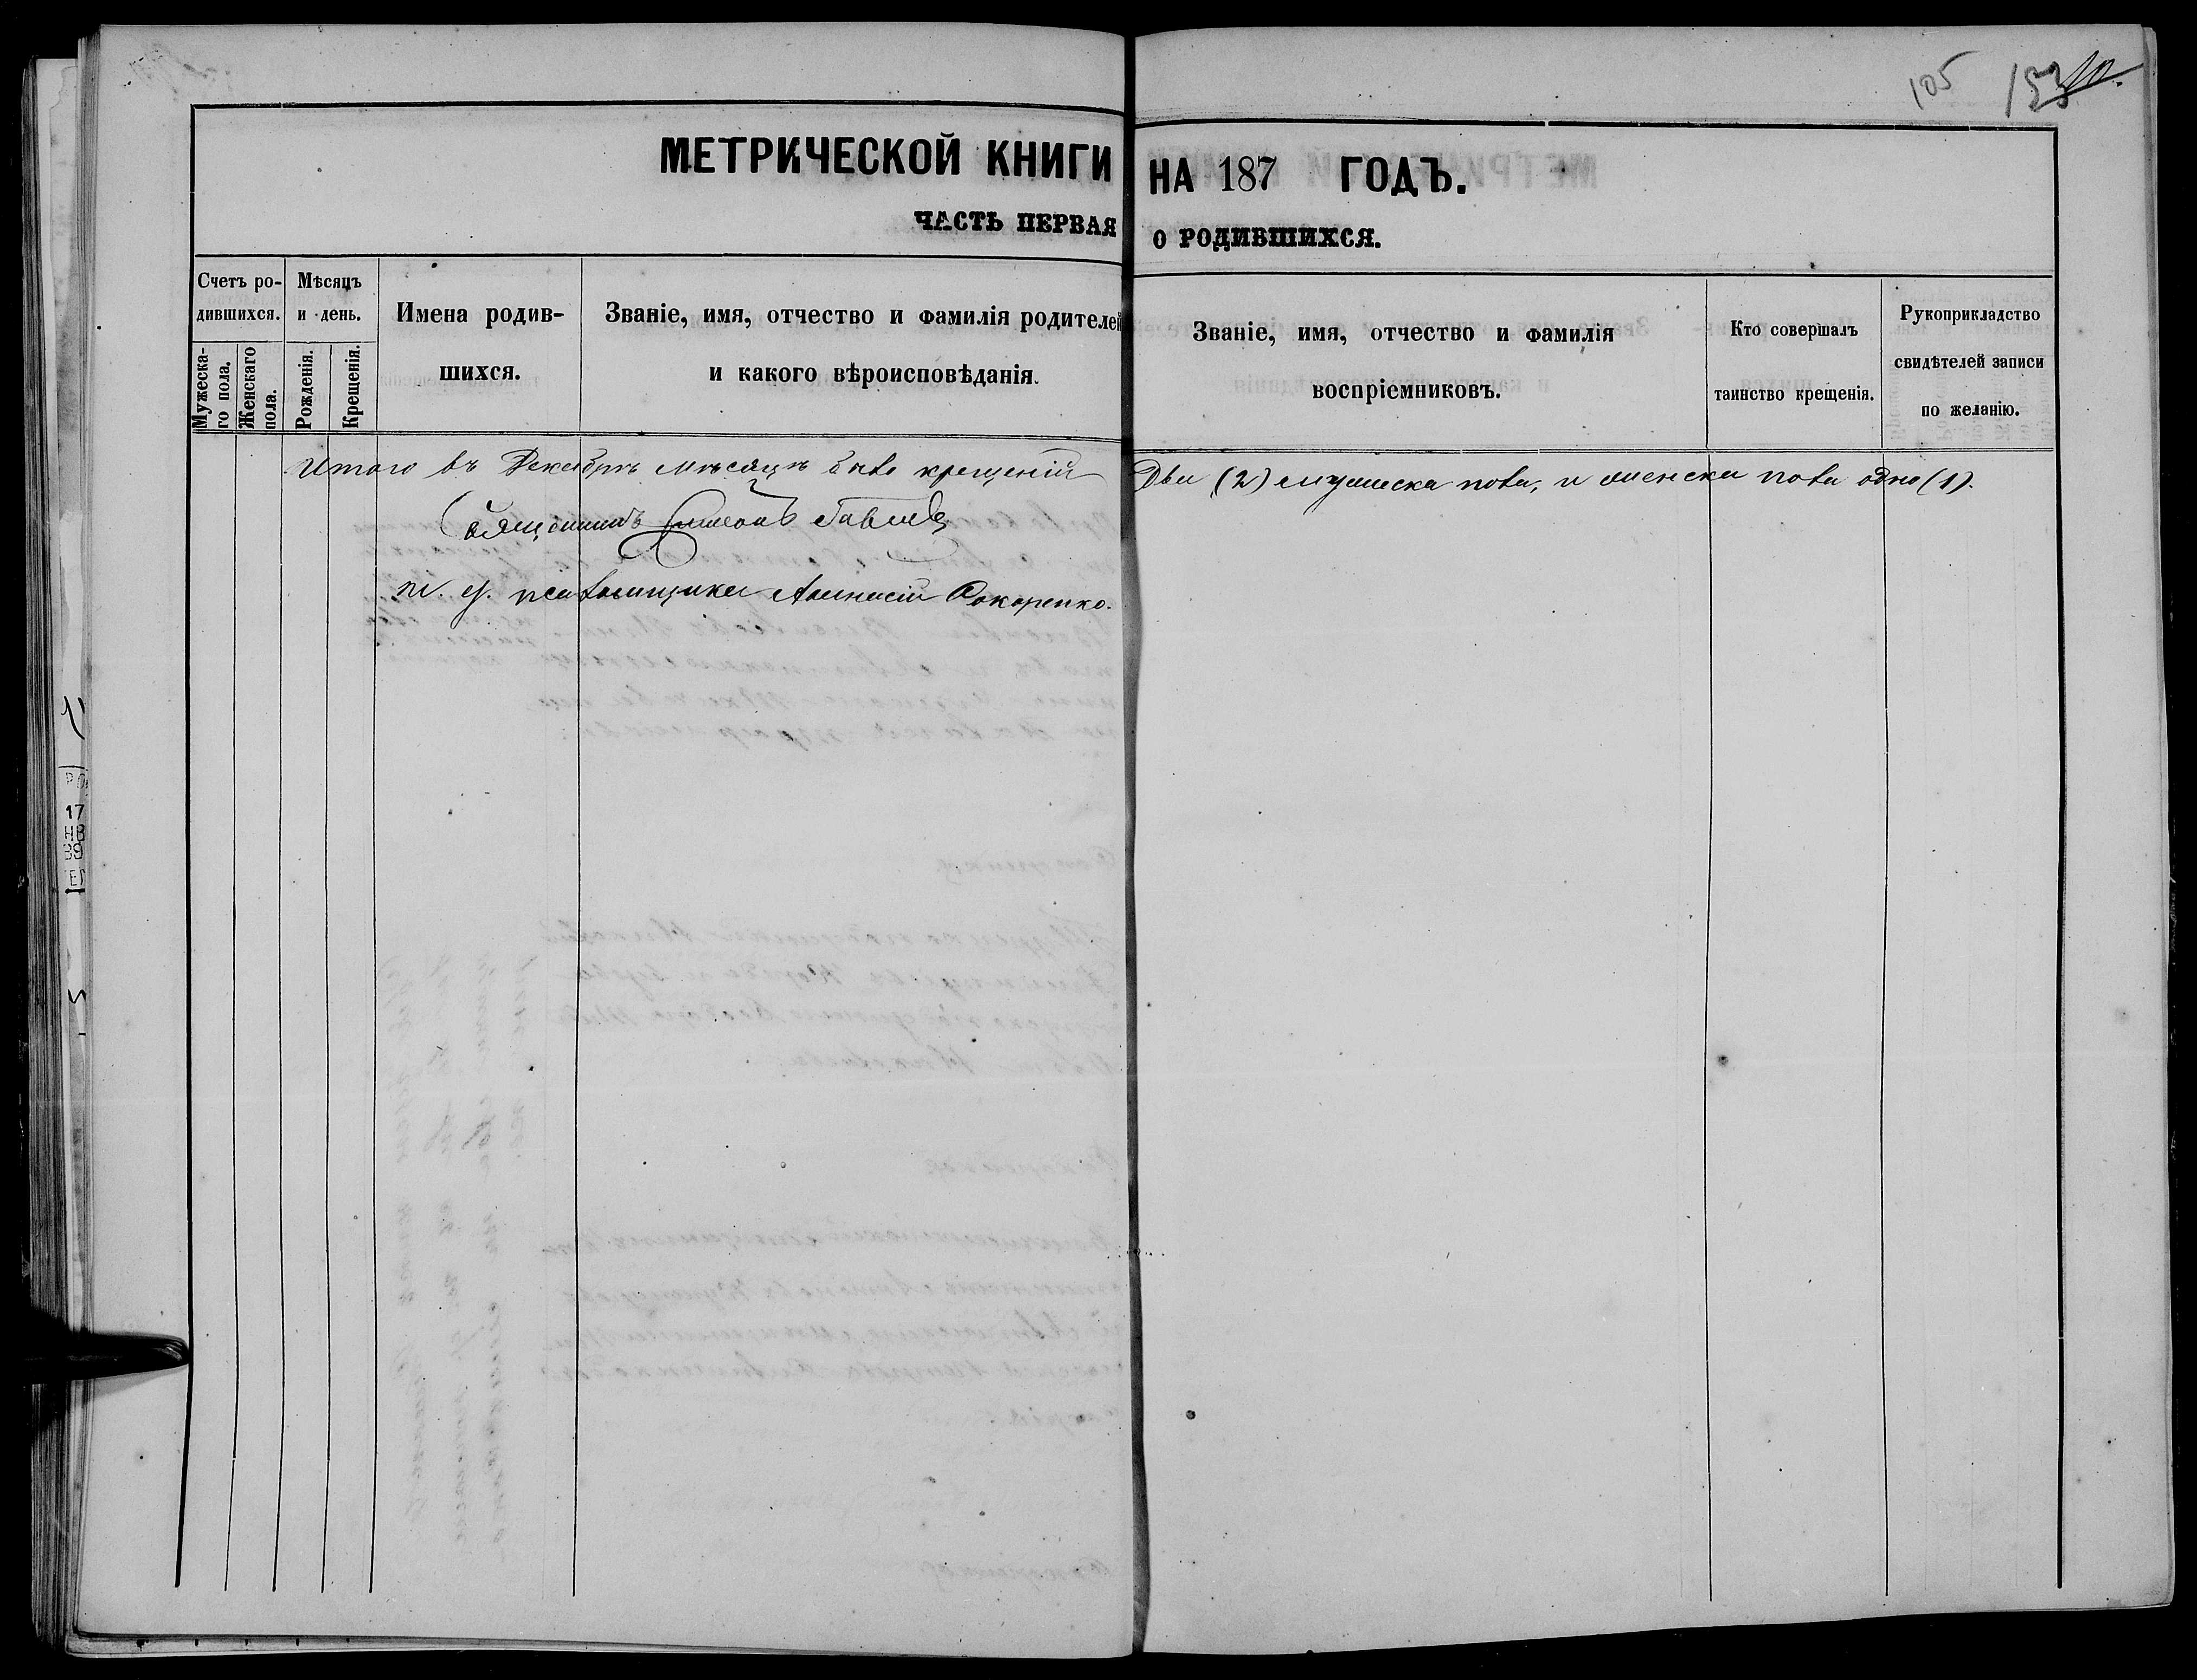 105 153
МЕТРИЧЕСКОЙ КНИГИ НА 187 ГОДЪ.
ЧАСТЬ ПЕРВАЯ О РОДИВШИХСЯ.
Счетъ ро-
дившихся.
Мужеска-
го пола.
Женскаго
пола.
Мѣсяцъ
и день.
Рожденія.
Крещенія.
Имена родив-
шихся.
Званіе, имя, отчество и фамилія родителей
и какого вѣроисповѣданія.
Званіе, имя, отчество и фамилія
воспріемниковъ.
Кто совершалъ
таинство крещенія.
Рукоприкладство
свидѣтелей записи
по желанію.
Итого въ Декабрѣ мѣсяцѣ было крещеній Два (2) мужеска пола, и женска пола одно (1).
Священникъ Симеонъ
и. д. псаломщика Кокоренко.